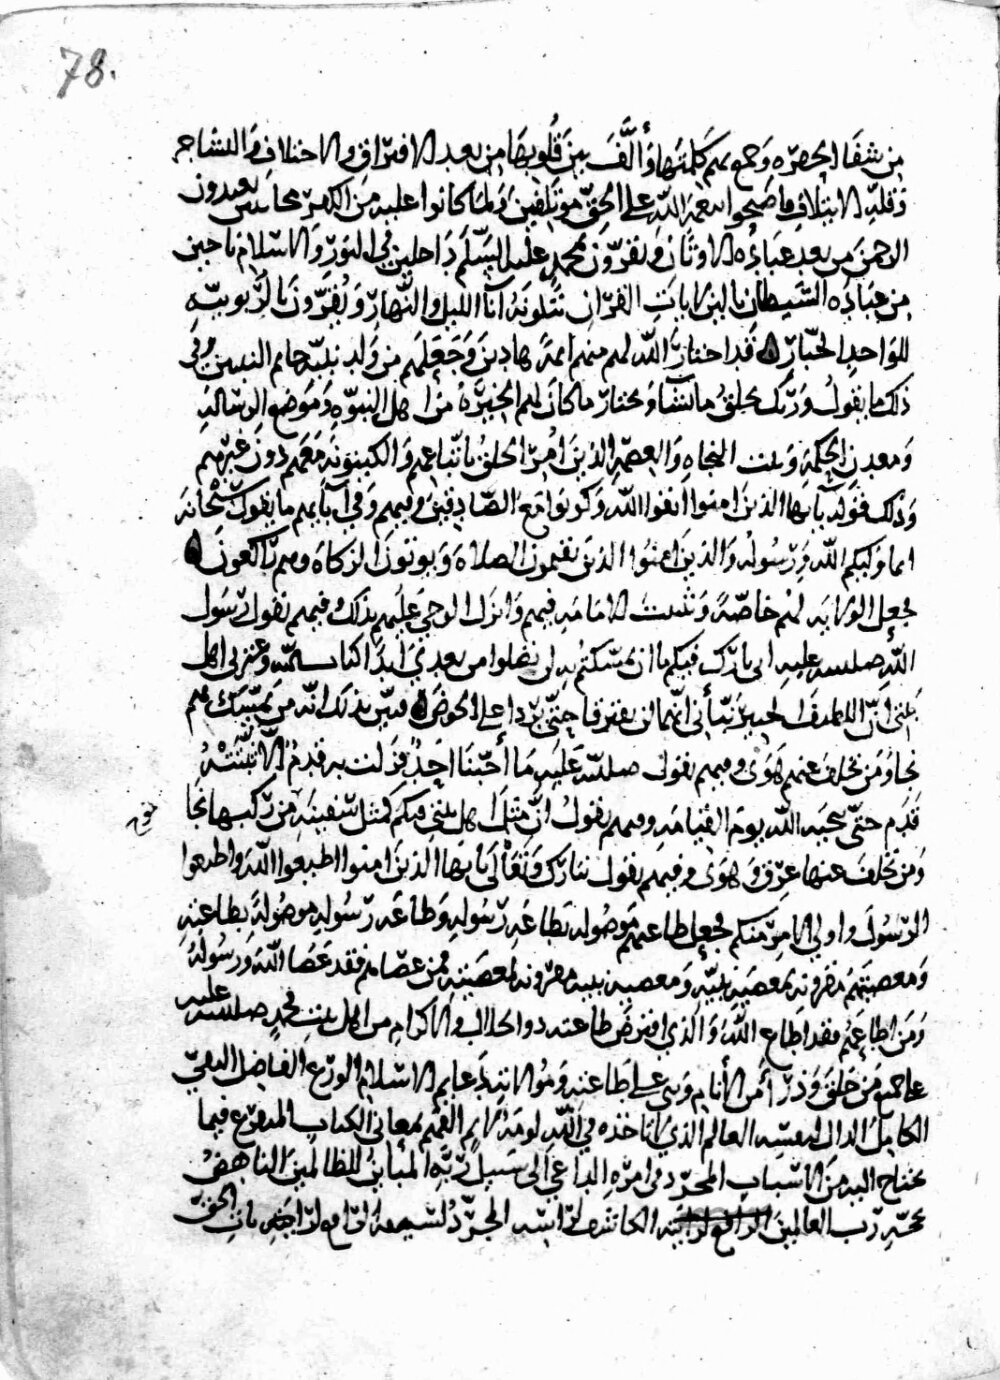 78.
من شفا الحفره وجمع بهم كلمتها وألف بين قلوبها من بعد الافتراق والاختلاف والتشاجر
وقلة الايتلاف فاصبحوا بنعمة الله على الحق موتلفين ولما كانوا عليه من الكفر مجانبين يعبدون
الرحمن من بعد عباده الاوثان ويقرون بمحمد عليه السلم داخلين في النور والاسلام ناجين
من عباده الشيطان تالين لايات القران يتلونه آنا الليل والنهار ويقرون بالربوبيه
للواحد الجبار قد اختار الله لهم منهم ايمة هادين وجعلهم من ولد نبيه خاتم النبيين وفي
ذلك ما يقول وربك يخلق ما يشآ ويختار ما كان لهم الخيرة من اهل النبوه وموضع الرسالة
ومعدن الحكمة وبيت النجاه والعصمة الذين امر الخلق باتباعهم والكينونة معهم دون غيرهم
وذلك قوله يآيها الذين امنوا اتقوا الله وكونوا مع الصادقين وفيهم وفي آبآيهم ما يقول سبحانه
انما وليكم الله ورسوله والذين امنوا الذين يقيمون الصلاة ويوتون الزكاة وهم راكعون
فجعل الولايه لهم خاصة وثبت الامامه فيهم وانزل الوحي عليهم بذلك وفيهم يقول رسول
الله صلى الله عليه اني تارك فيكم ما ان تمسكتم به لن تضلوا من بعدي ابدا كتاب الله وعترتي اهل
بيتي ان اللطيف الخبير نبأني انهما لن يفترقا حتى يردا على الحوض فبين بذلك انه من تمسك بهم
نجا ومن تخلف عنهم هوى وفيهم يقول صلى الله عليه ما أحبنا احد فزلت به قدم الا ثبتته
قدم حتى ينجيه الله يوم القيامه وفيهم يقول ان مثل اهل بيتي فيكم كمثل سفينة من ركبها نجا
ومن تخلف عنها غرق وهوى وفيهم يقول تبارك وتعآلى يا يها الذين امنوا اطيعوا الله واطيعوا
الرسول واولي الامر منكم فجعل طاعتهم موصولة بطاعة رسوله وطاعة رسوله موصولة بطاعته
ومعصيتهم مقرونة بمعصية نبيه ومعصية نبيه مقرونة بمعصيته فمن عصاهم فقد عصا الله ورسوله
ومن اطاعهم فقد اطاع الله والذي افترض طاعته ذو الجلال والاكرام من اهل بيت محمد صلى الله عليه
على جميع من خلق وذرأ من الأنام وبنى على اطاعته وموالاته دعايم الاسلام الورع الفاضل التقي
الكامل الدال لنفسه العالم الذي لا تاخذه في الله لومة لايم الفهم بمعاني الكتاب المتفرع فيما
يحتاج اليه من الاسباب المجرد في امره الداعي الى سبيل ربه المباين للظالمين الناهض
بحجة رب العالمين الرافع لرايته الكاشف لراسه المجرد لسيفه باين الحق